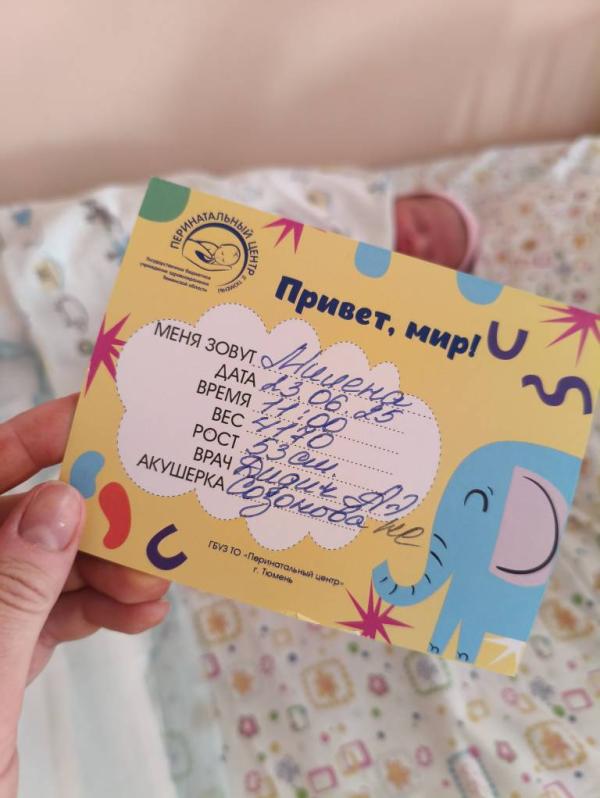 ПЕРИНАТАЛЬНЫЙ ЦЕНТР г. ТЮМЕНЬ
Государственное бюджетное
учреждение здравоохранения
Тюменской области
Привет, мир!
МЕНЯ ЗОВУТ Милена
ДАТА 23.06.25
ВРЕМЯ 11:00
ВЕС 4170
РОСТ 53 см
ВРАЧ Дидич
АКУШЕРКА Созонова
ГБУЗ ТО «Перинатальный центр»
г. Тюмень